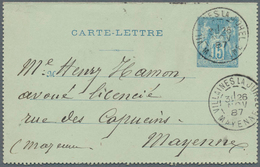 CARTE-LETTRE
15
VILLAINES LA JUHEL
Mr Henry Hamon,
avoué licencié
rue des Capucins
Mayenne
(Mayenne)
VILLAINES LA JUHEL
26
87
MAYENNE